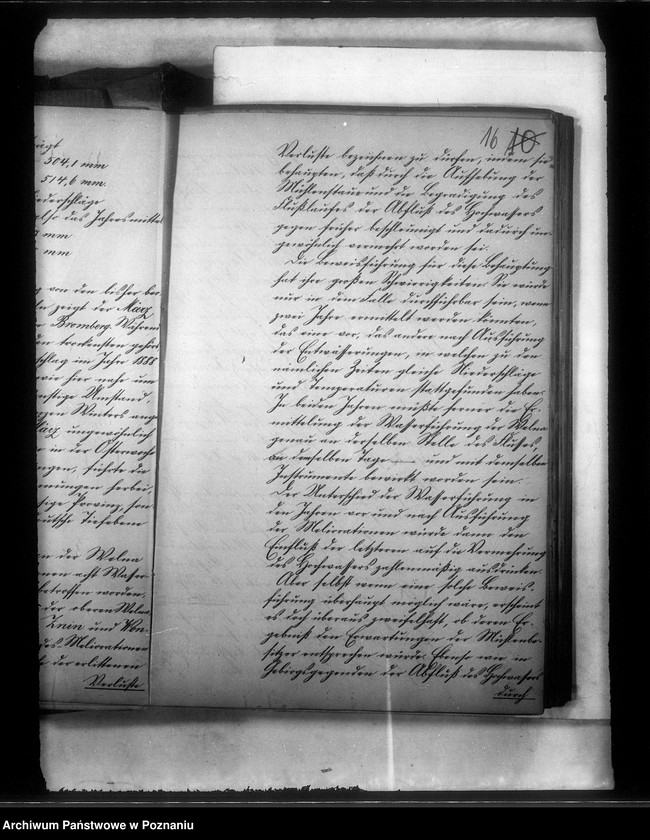 trägt
504,1 mm
514,6 mm.
Niederschläge
also das Jahresmittel
mm
mm
g von den bisher be
zeigt der März
Bromberg. Während
den trockensten gehört
schlag im Jahr 1888
wie hier nahe um
Umstand,
Winters
März ungewöhnlich
in der Osterwoche
führte die
herbei,
Provinz, son
deutsche Tiefebene
an der Welna
acht Wasser
betroffen worden,
der oberen Welna
Znin und Won
des Meliorationen
der erlittenen
Verluste
16 10
Verluste bezeichnen zu dürfen, indem sie
behaupten, daß durch die Aufhebung der
Mühlenstaue und die Begradigung des
Flußlaufes der Abfluß des Hochwassers
gegen früher beschleunigt und dadurch un-
gewöhnlich vermehrt worden sei.
Die Beweisführung für diese Behauptung
hat ihre großen Schwierigkeiten. Sie würde
nur in dem Falle durchführbar sein, wenn
zwei Jahre ermittelt werden könnten,
das eine vor, das andere nach Ausführung
der Entwässerungen, in welchen zu den
nämlichen Zeiten gleiche Niederschläge
und Temperaturen stattgefunden haben.
In beiden Jahren müßte ferner die Er-
mittelung der Wasserführung der Welna
genau an derselben Stelle des Flusses
an demselben Tage und mit demselben
Instrumente bewirkt worden sein.
Der Unterschied der Wasserführung in
den Jahren vor und nach Ausführung
der Meliorationen würde dann den
Einfluß der letzteren auf die Vermehrung
des Hochwassers zahlenmäßig ausdrücken.
Aber selbst wenn eine solche Beweis-
führung überhaupt möglich wäre, erscheint
es doch überaus zweifelhaft, ob deren Er-
gebniß den Erwartungen der Mühlenbe-
sitzer entsprechen würde. Ebenso wie in
Gebirgsgegenden der Abfluß des Hochwassers
durch
Archiwum Państwowe w Poznaniu